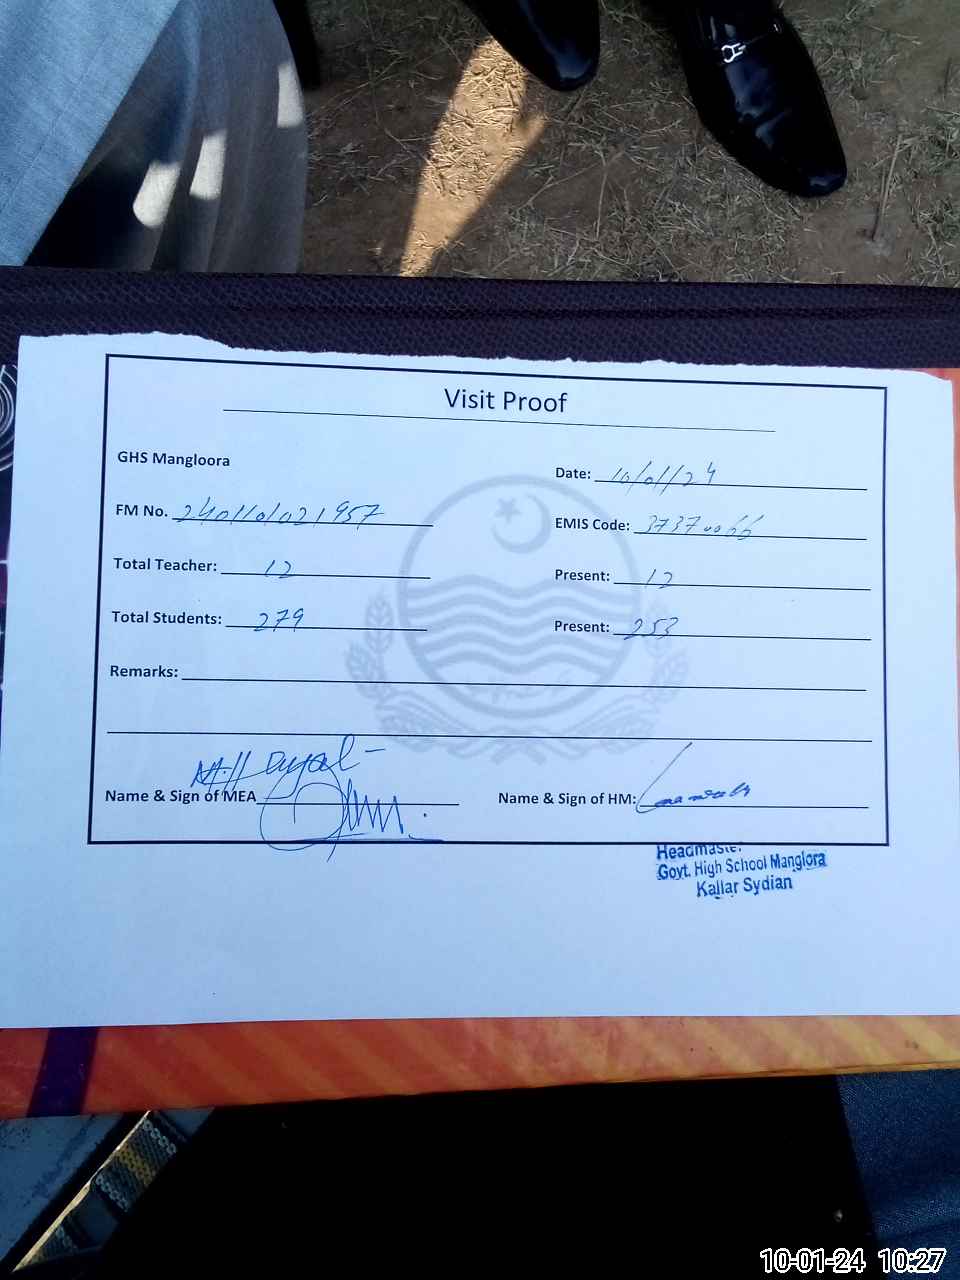 Visit Proof
GHS Mangloora
Date: 10/01/24
FM No. 240110/021957
EMIS Code: 37370066
Total Teacher: 12
Present: 12
Total Students: 279
Present: 253
Remarks:
Name & Sign of MEA
Name & Sign of HM:
Headmaster
Govt. High School Manglora
Kallar Sydian
10-01-24 10:27